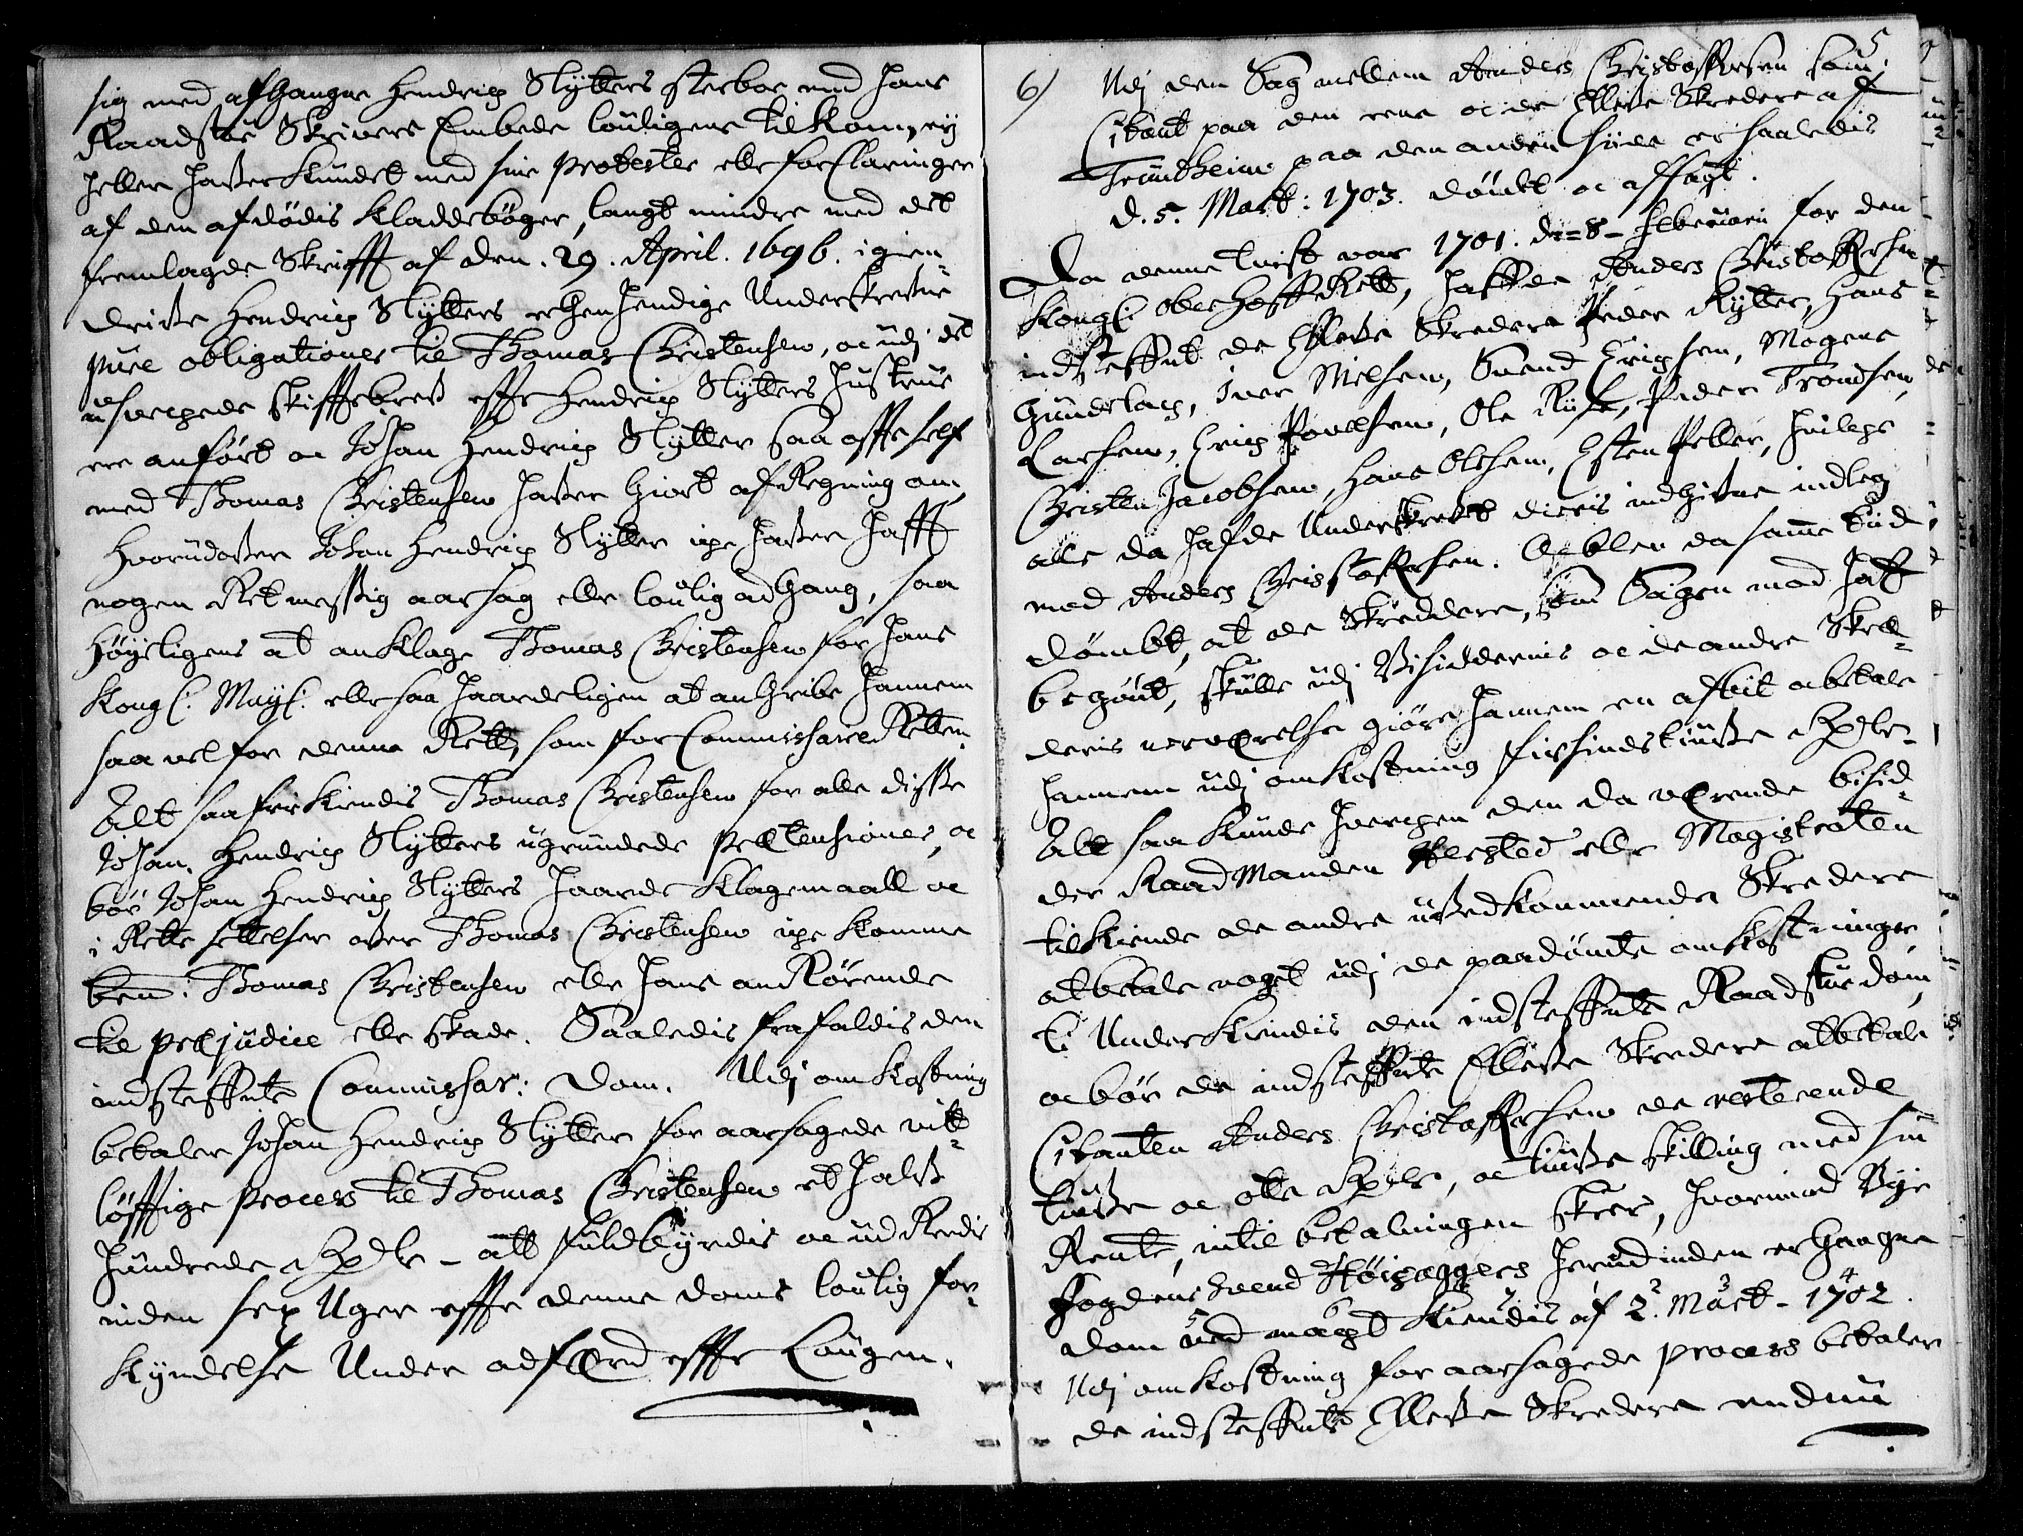 sig med afgangne Hendrig Slÿtters sterboe und hans
Raadstue Skrivers Embede louligens tilkom, eÿ
heller hafver kundet med sine protester eller forklaringer
af den afdødis kladdebøger, langt mindre med det
fremlagde Skrifft af den 29. April. 1696. igien
drifve Hendrig Slÿtters egenhendige Underskrefne
pure obligationer til Thomas Christensen, oc udj det
skiftebref efter Hendrig Slÿtters hustrue
ere anført oc Johan Hendrig Slÿtter saa ofte self
med Thomas Christensen hafver giort afRegning om,
hvorudofver Johan Hendrig Slÿtter icke hafver hafft
nogen Retmessig aarsag eller loulig adgang, saa
høÿeligens at anklage Thomas Christensen for hans
Kongl: Maÿt: eller saa haardeligen at angribe hannem
saa vel for denne Rett, som for Commissarie Retten.
Alt saa frikiendis Thomas Christensen for alle disse
Johan Hendrig Slÿtters ugrundede prætensioner, oc
bør Johan Hendrig Slÿtters haarde klagemaall oc
i Rette settelser ofver Thomas Christensen icke komme
bem: Thomas Christensen eller hans andRørende
til præjudice eller skade. Saaledis frafaldis den
indsteffnte Commissar: dom. Udj omkostning
betaler Johan Hendrig Slÿtter for aarsagede vitt-
løfftige process til Thomas Christensen et halft
hundrede Rixdlr – alt fuldbÿrdis oc udRedis
inden sex Uger efter denne doms loulig for-
kÿndelse Under adferd effter Lougen.
5
6) Udj den Sag mellem Anders Christoffersen som
Citant paa den eene oc de Ellefve Skredere af
Trundheim paa den anden side er saaledis
d. 5. Mart: 1703. dømt oc afsagt.
Da denne tvist var 1701. d: 8 – Februarii for den
Kongl: Ober Hoff Rett, haffde Anders Christoffersen
indsteffnt de Ellefve Skredere Peder Rÿtter, Hans
Gundelag, Iver Nielsen, Svend Erichsen, Mogens
Larsen, Erig Povelsen, Ole Riise, Peder Trondsen,
Christen Jacobsen, Hans Olesen, Esten Peller, huilche
alle da hafde Underskrefvet dieris indgifne indleg
med Anders Christoffersen. Oc blev da samme tiid
dømbt, at de Skreddere, som Sagen med haft
begÿnt, skulle udj Bisiddernis oc de andre Skræ-
deris nerværelse giøre hannem en afbit oc betale
hannem udj omkostning firsindstiufve Rixdlr.
Alt saa kunde hverchen den da værende bisid-
der Raadmanden Hersted eller Magistraten
tilkiende de andre uvedkommende Skredere
at betale noget udj de paadømte omkostninger
ti Underkiendis den indsteffnte Raadstue dom,
oc bør de indsteffnte Ellefve Skredere at betale
Citanten Anders Christoffersen de resterende
tiufve oc otte Rixdlr, oc tiufve skilling med sin
Rente, intil betalningen skeer, hvorimod Bÿe
Fogden Svend Høiseggers herudinden ergangne
dom ved magt kiendis af 2. Mart – 1702.
Udj omkostning for aarsagede process betaler
de indsteffnte Ellefve Skredere endnu